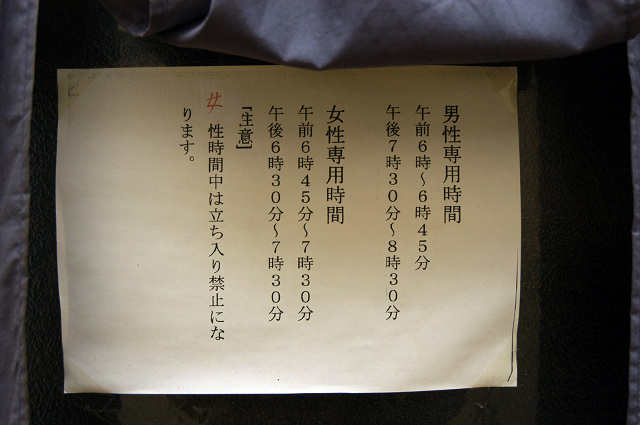 男性専用時間
午前６時～６時４５分
午後７時３０分～８時３０分
女性専用時間
午前６時４５分～７時３０分
午後６時３０分～７時３０分
『注意』
女性時間中は立ち入り禁止にな
ります。